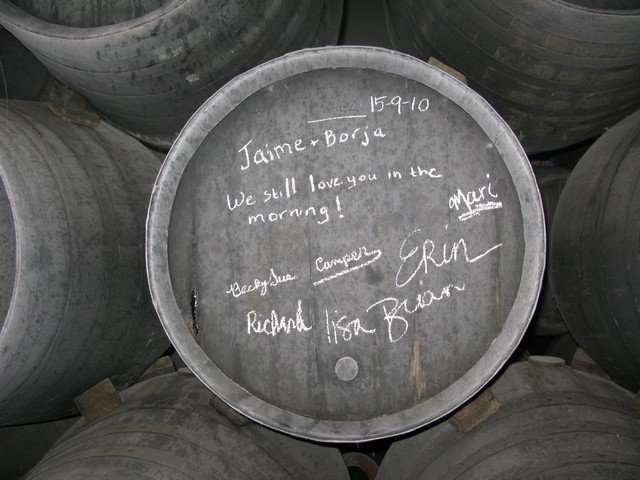 15-9-10
Jaime + Borja
We still love you in the
morning!
Mari
BeckySue Camper Erin
Richard lisa Brian